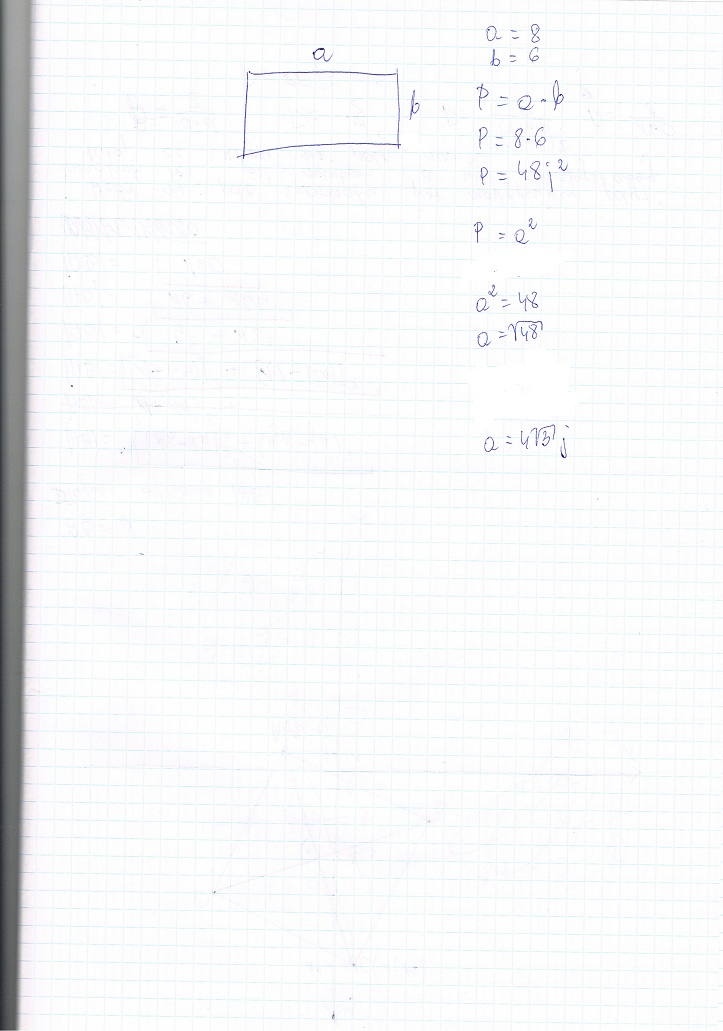 a
b
a = 8
b = 6
P = a · b
P = 8 · 6
P = 48 j²
P = a²
a² = 48
a = √48
a = 4√3 j